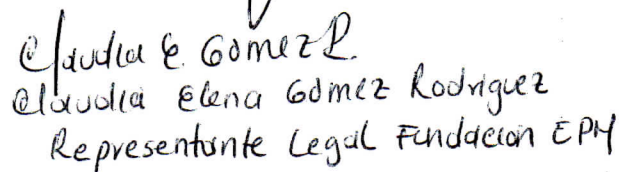 Claudia E. Gómez R.
Claudia Elena Gómez Rodriguez
Representante Legal Fundacion EPM